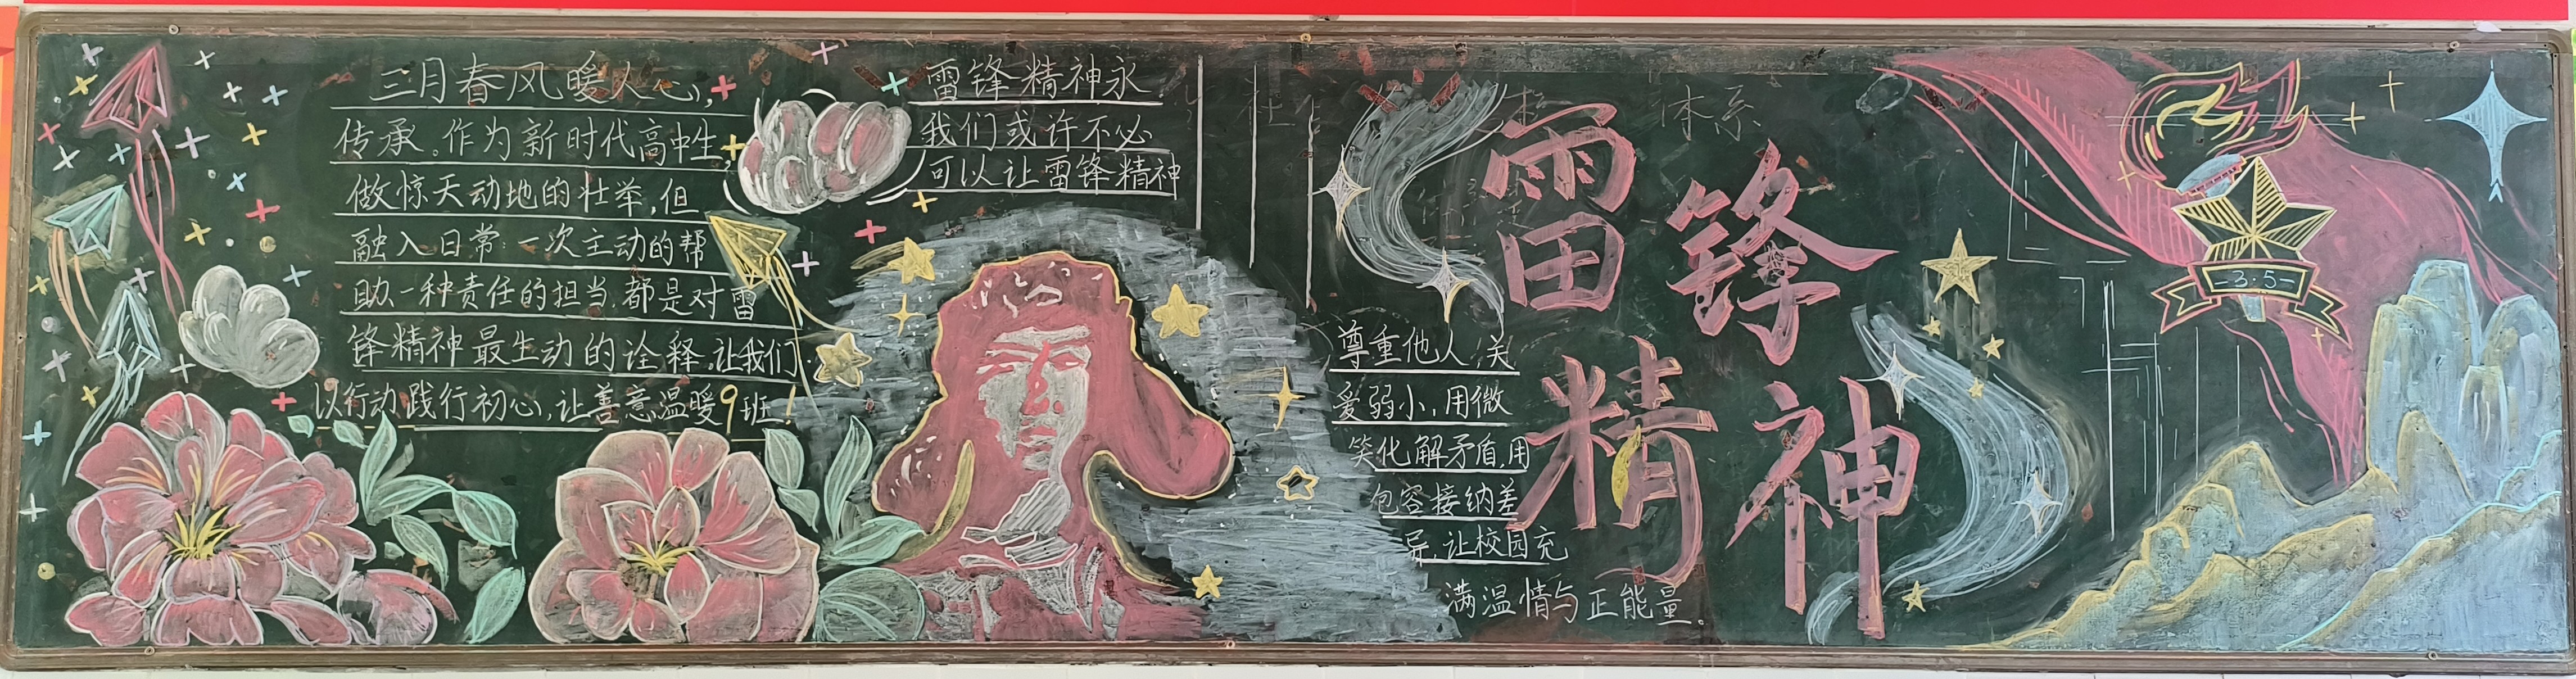 三月春风暖人心, 雷锋精神永
传承。作为新时代高中生, 我们或许不必
做惊天动地的壮举,但 可以让雷锋精神
融入日常:一次主动的帮
助、一种责任的担当,都是对雷
锋精神最生动的诠释。让我们
以行动践行初心,让善意温暖9班!
雷锋
精神
体系
尊重他人,关
爱弱小,用微
笑化解矛盾,用
包容接纳差
异,让校园充
满温情与正能量。
-3·5-